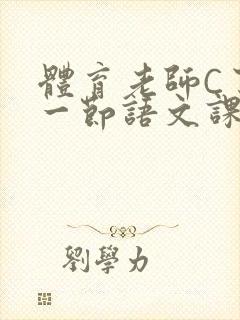 體育老師C
一節語文課
劉學力